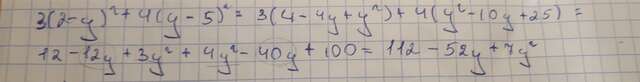 3(2-y)²+4(y-5)²=3(4-4y+y²)+4(y²-10y+25)=
12-12y+3y²+4y²-40y+100=112-52y+7y²